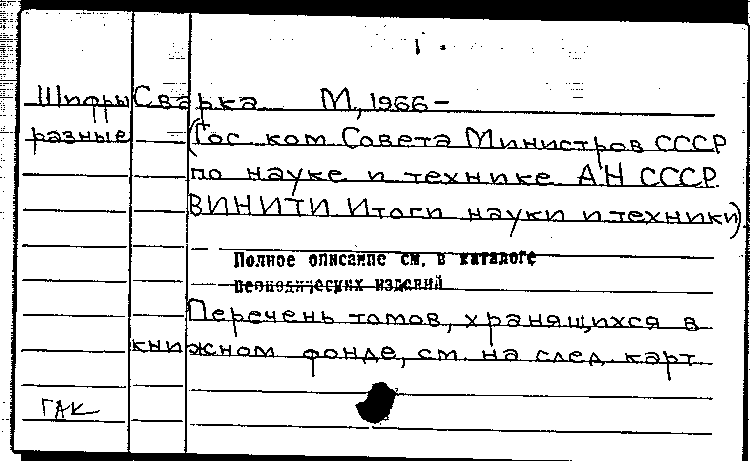 Шифры Сварка М, 1966 –
разные (Гос. ком. Совета Министров СССР
по науке и технике. АН СССР.
ВИНИТИ. Итоги науки и техники).
Полное описание см. в каталоге
периодических изданий
Перечень томов, хранящихся в
книжном фонде, см. на след. карт.
ГАК